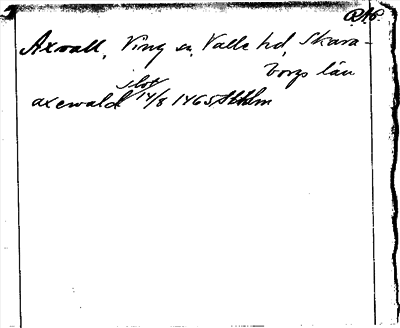 Axvall, Ving sn, Valle hd, Skara-
borgs län
slot
axewald 14/8 1465 Sthlm